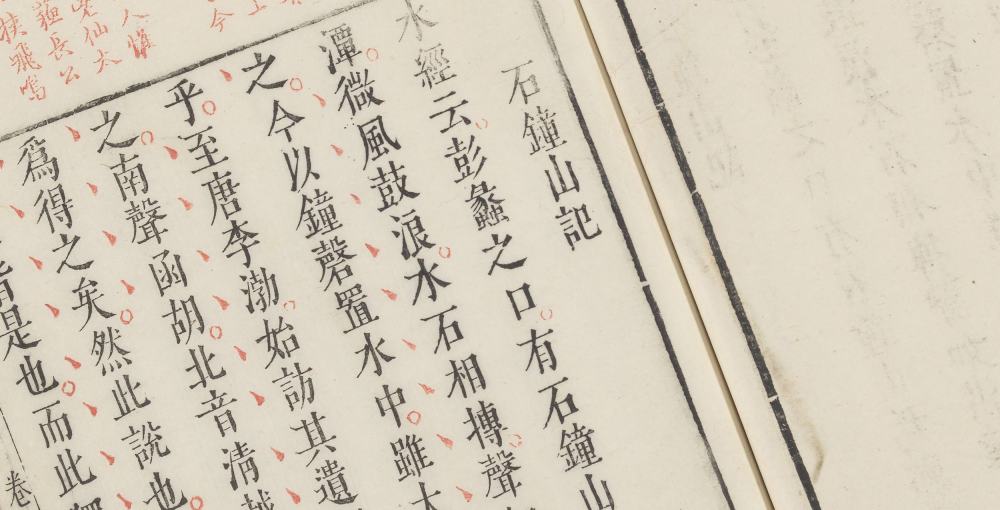 石鐘山記
水經云彭蠡之口有石鐘山
潭微風鼓浪水石相摶聲
之今以鐘磬置水中雖大
乎至唐李渤始訪其遺
之南聲函胡北音清越
爲得之矣然此說也
皆是也而此獨
卷
今
人慎
仙太
蘓長公
挾飛鳴